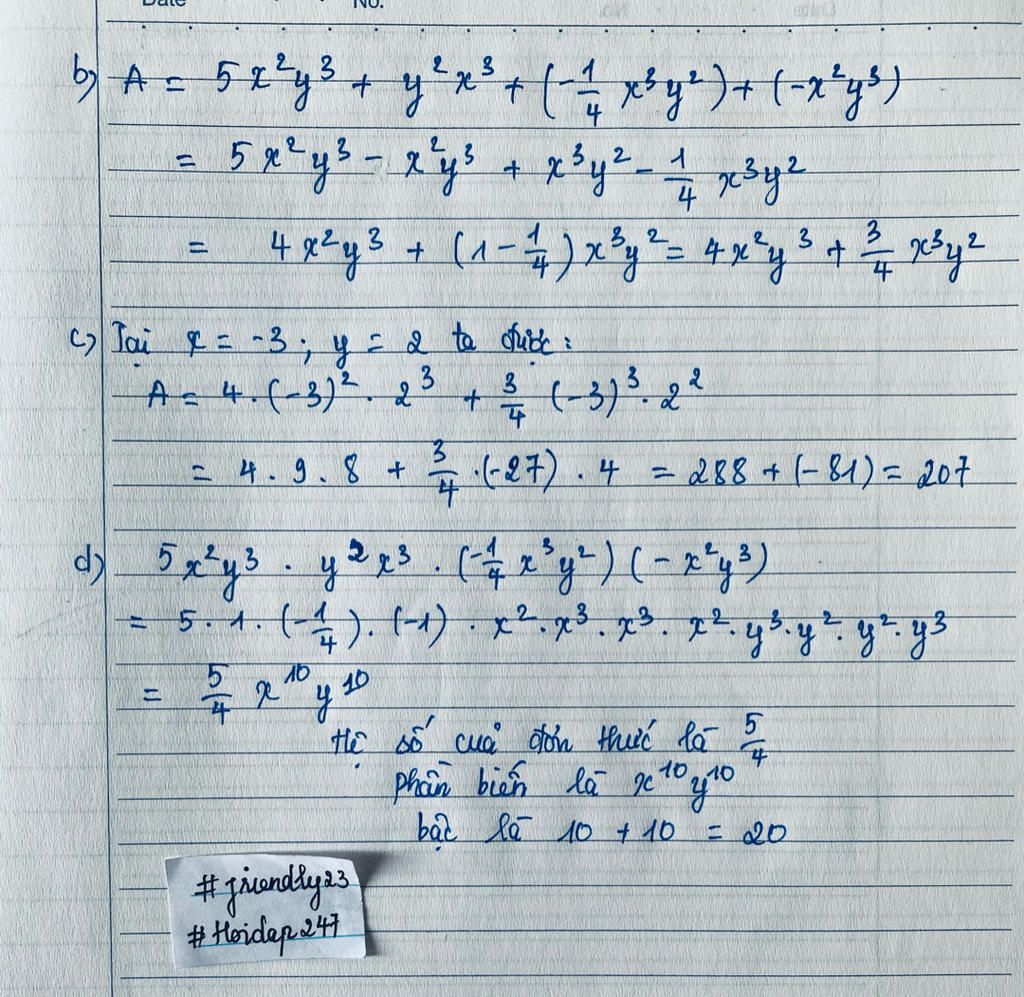 Date No.
b) A = 5x²y³ + y²x³ + (-1/4 x³y²) + (-x²y³)
= 5x²y³ - x²y³ + x³y² - 1/4 x³y²
= 4x²y³ + (1 - 1/4) x³y² = 4x²y³ + 3/4 x³y²
c) Tại x = -3; y = 2 ta được:
A = 4 . (-3)² . 2³ + 3/4 (-3)³ . 2²
= 4 . 9 . 8 + 3/4 . (-27) . 4 = 288 + (-81) = 207
d) 5x²y³ . y²x³ . (-1/4 x³y²) (-x²y³)
= 5 . 1 . (-1/4) . (-1) . x² . x³ . x³ . x² . y³ . y² . y² . y³
= 5/4 x¹⁰ y¹⁰
Hệ số của đơn thức là 5/4
phần biến là x¹⁰y¹⁰
bậc là 10 + 10 = 20
#friendly23
#Hoidap247